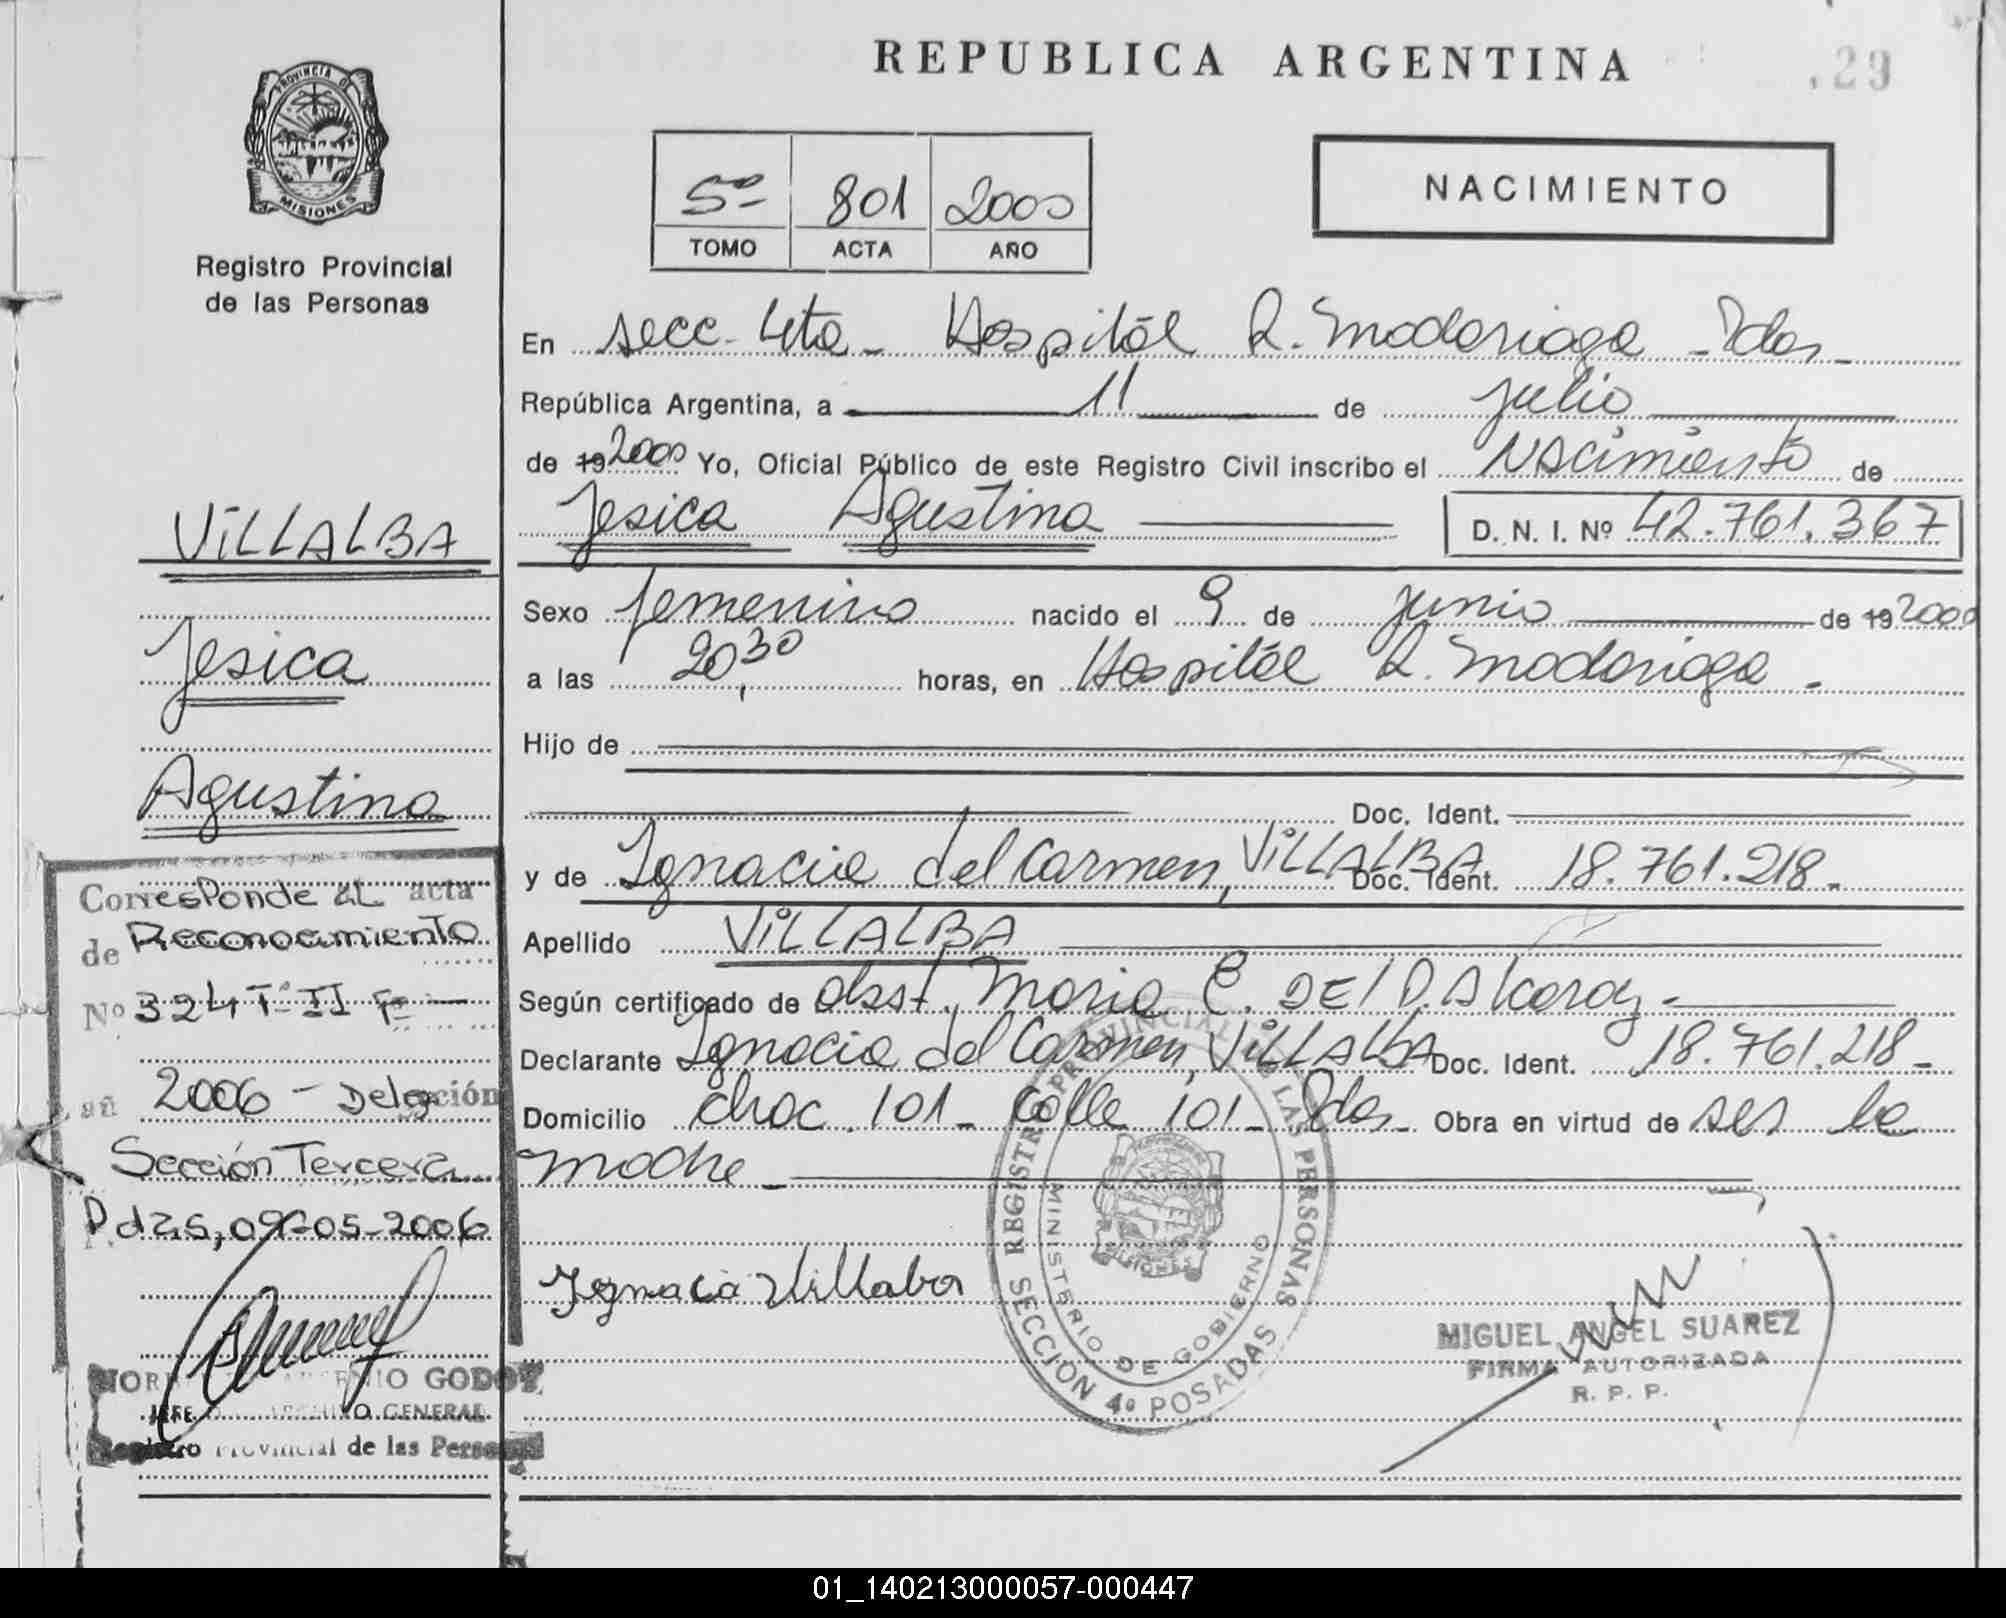 REPUBLICA ARGENTINA
29
PROVINCIA DE
MISIONES
Registro Provincial
de las Personas
5º 801 2000
TOMO ACTA AÑO
NACIMIENTO
En secc. 4ta - Hospital R. Madariaga - Pdas -
República Argentina, a 11 de julio
de 19 2000 Yo, Oficial Público de este Registro Civil inscribo el Nacimiento de
Jesica Agustina D. N. I. Nº 42.761.367
Sexo femenino nacido el 9 de junio de 19 2000
a las 20,30 horas, en Hospital R. Madariaga -
Hijo de
Doc. Ident.
y de Ignacia del Carmen, ViLLALBA Doc. Ident. 18.761.218 -
Apellido ViLLALBA
Según certificado de obst. Maria E. DEI D. Alcaraz -
Declarante Ignacia del Carmen, ViLLALBA Doc. Ident. 18.761.218 -
Domicilio chac. 101 - Calle 101 - Pdas - Obra en virtud de ser la
madre -
Ignacia Villalba
REGISTRO PROVINCIAL DE LAS PERSONAS
SECCION 4º POSADAS
MINISTERIO DE GOBIERNO
MIGUEL ANGEL SUAREZ
FIRMA AUTORIZADA
R. P. P.
ViLLALBA
Jesica
Agustina
Corresponde al acta
de Reconocimiento
Nº 324 Tº II F -
2006 - Delegación
Sección Tercera
Pdas, 09-05-2006
GODOY
JEFE ARCHIVO GENERAL
Registro Provincial de las Personas
01_140213000057-000447